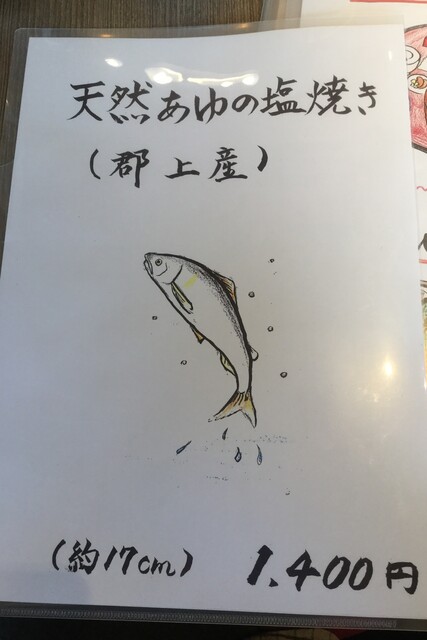 天然あゆの塩焼き
(郡上産)
(約17cm) 1.400円